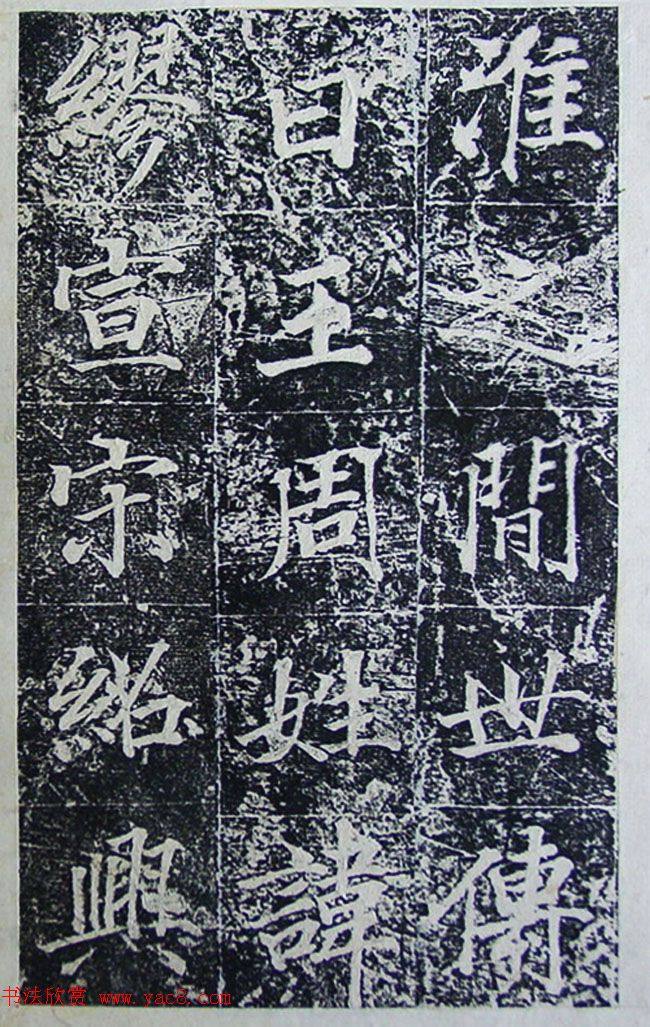 淮之間世傳
曰王周姓諱
繆宣宋紹興
书法欣赏 www.yac8.com